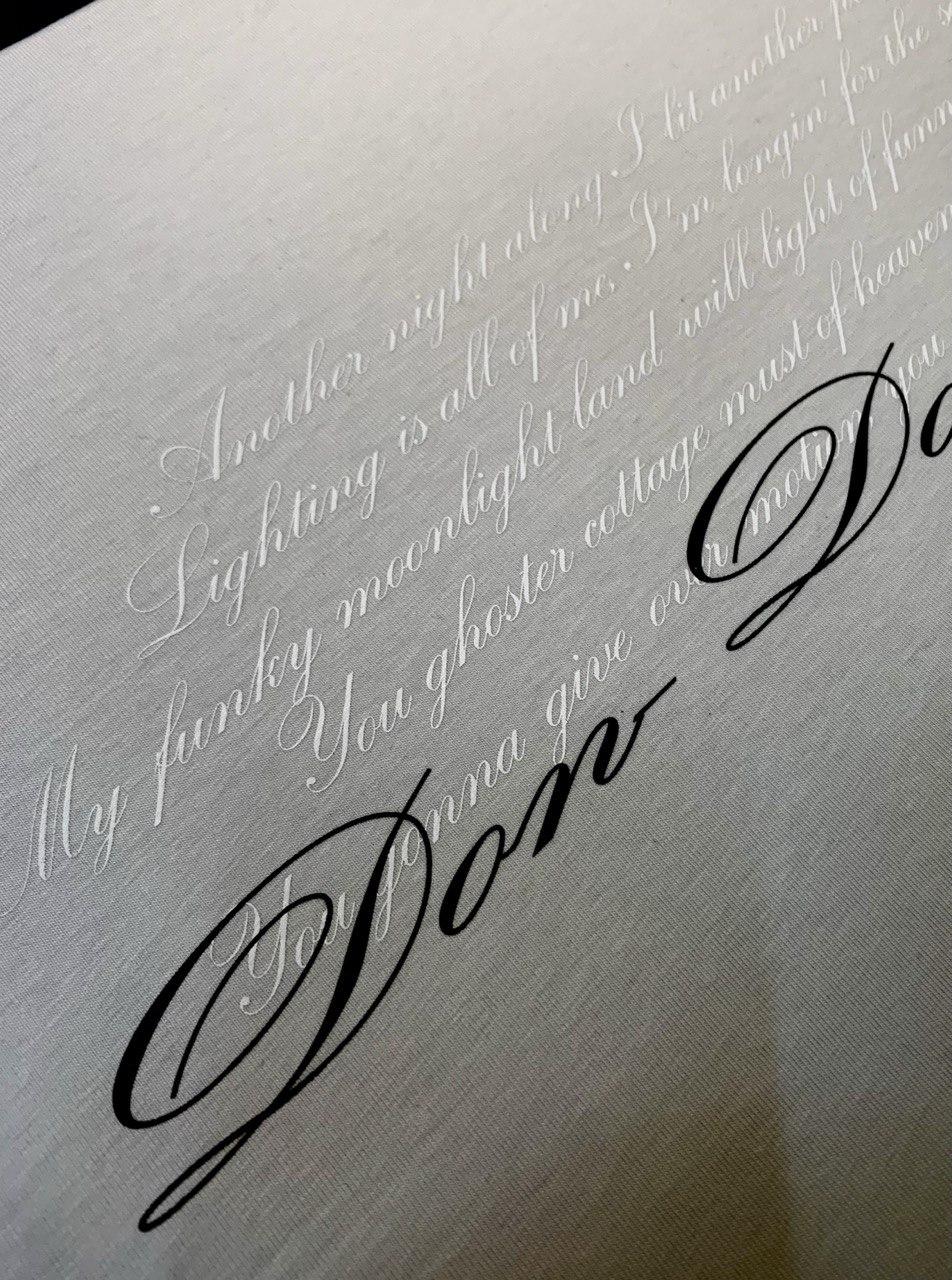 Another night along I bit another
Lighting is all of me. I'm longin' for the
My funky moonlight land will light of
You ghoster cottage must of heaven
You gonna give over motion you
Don